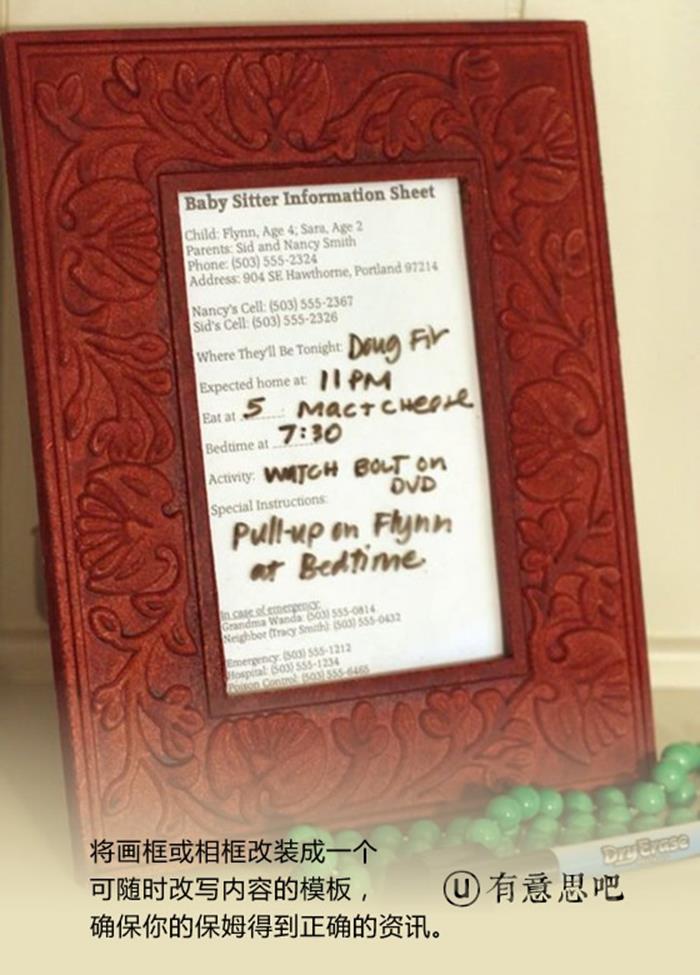 Baby Sitter Information Sheet
Child: Flynn, Age 4; Sara, Age 2
Parents: Sid and Nancy Smith
Phone: (503) 555-2324
Address: 904 SE Hawthorne, Portland 97214
Nancy's Cell: (503) 555-2367
Sid's Cell: (503) 555-2326
Where They'll Be Tonight: Doug Fir
Expected home at: 11PM
Eat at 5 Mac + cheese
Bedtime at 7:30
Activity: WATCH BOLT on
DVD
Special Instructions:
Pull-up on Flynn
at Bedtime
In case of emergency:
Grandma Wanda: (503) 555-0814
Neighbor (Tracy Smith): (503) 555-0432
Emergency: (503) 555-1212
Hospital: (503) 555-1234
Poison Control: (503) 555-6465
Dry Erase
将画框或相框改装成一个
可随时改写内容的模板，
确保你的保姆得到正确的资讯。
u 有意思吧